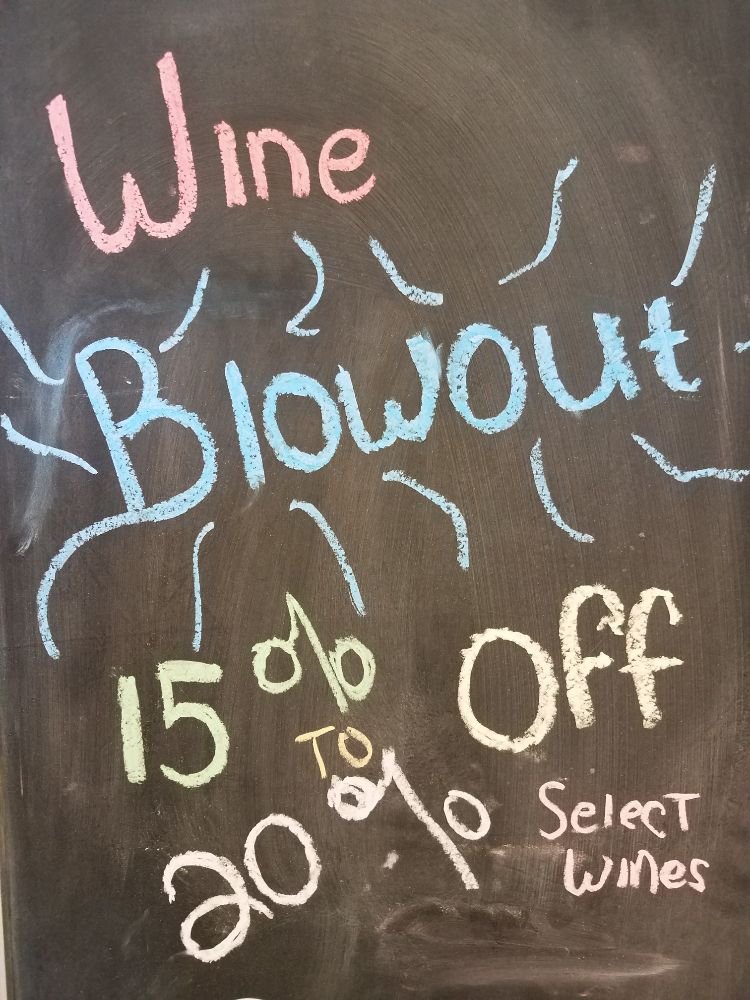 Wine
Blowout
15%
TO
20%
Off
Select
Wines